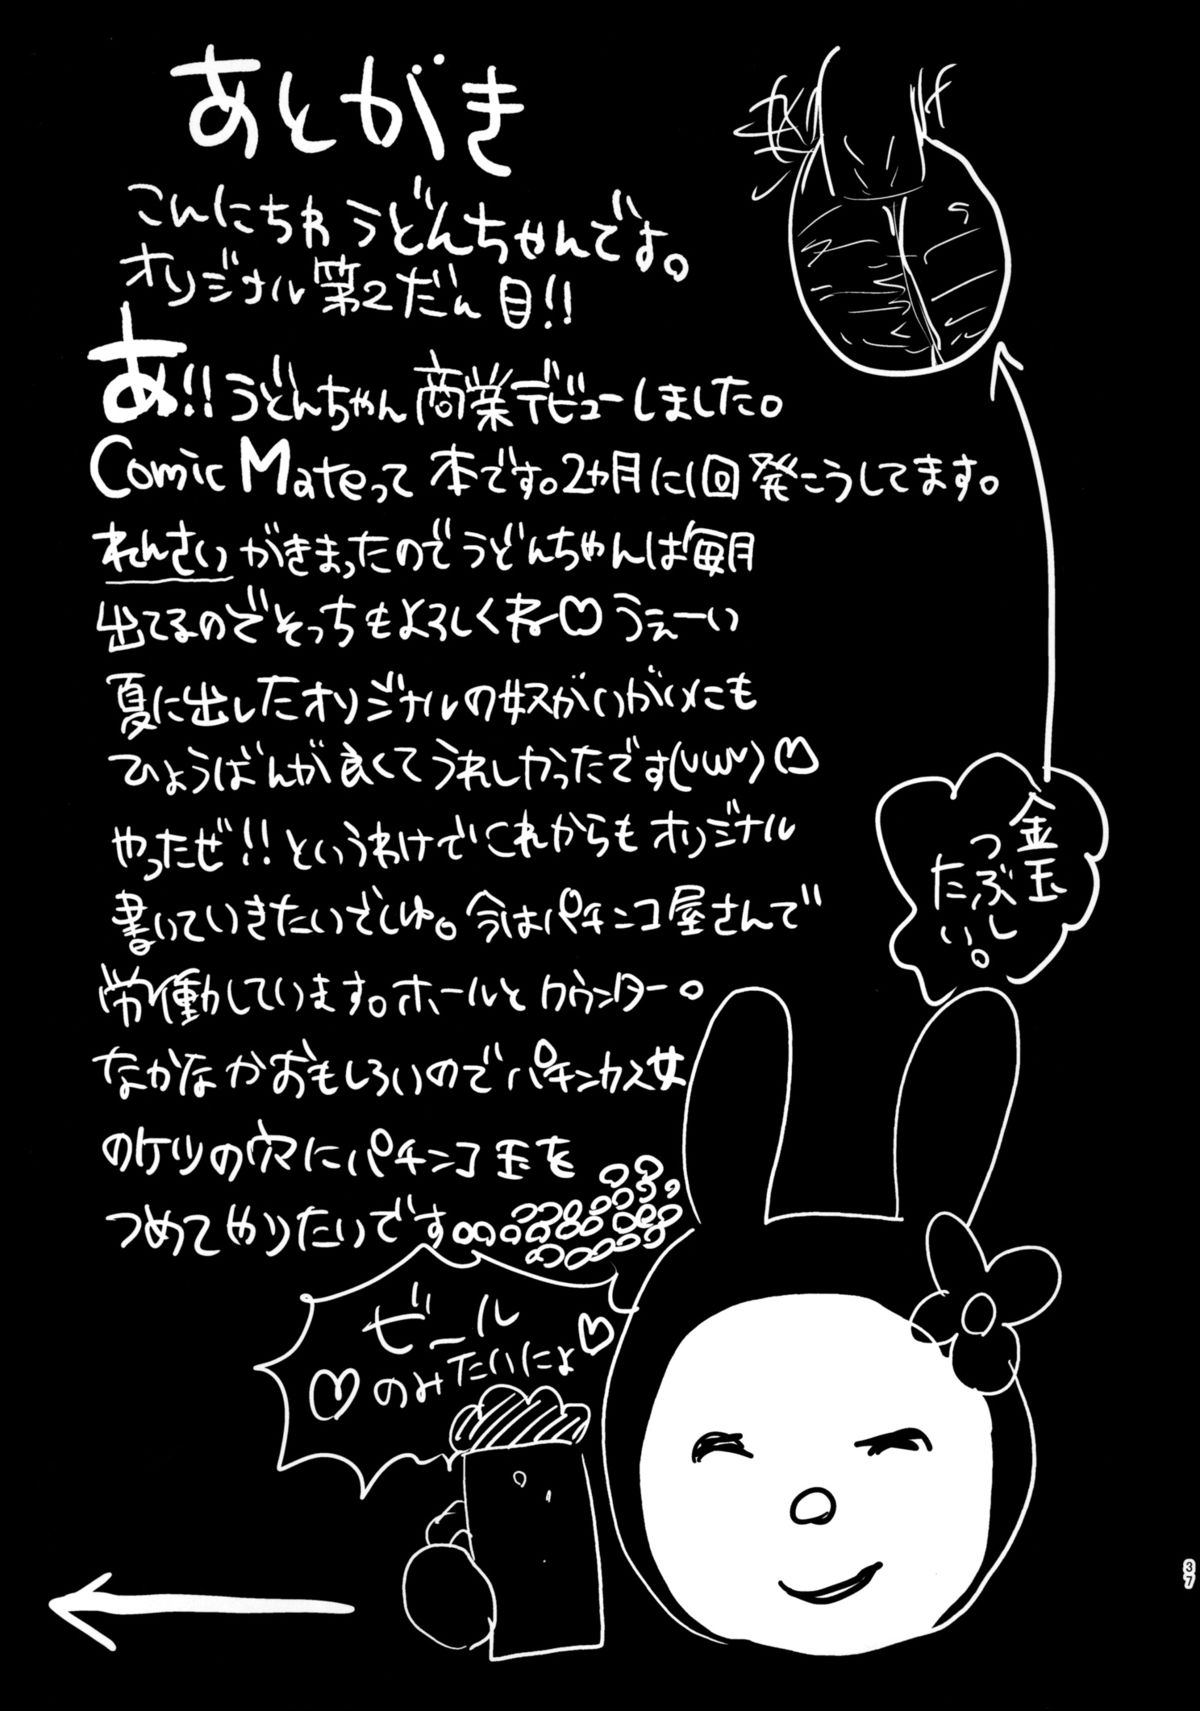 あとがき
こんにちわ うどんちゃんです。
オリジナル第2だん目!!
あ!!うどんちゃん商業デビューしました。
Comic Mateって本です。2カ月に1回発こうしてます。
れんさいがきまったのでうどんちゃんは毎月
出てるのでそっちもよろしくね♡うぇーい
夏に出したオリジナルの奴がいがいにも
ひょうばんが良くてうれしかったです(^ω^)♡
やったぜ!!というわけでこれからもオリジナル
書いていきたいでしゅ。今はパチンコ屋さんで
労働しています。ホールとカウンター。
なかなかおもしろいのでパチンカス女
のケツの穴にパチンコ玉を
つめてやりたいです。
金玉
つぶし
たい。
ビール
♡のみたいにょ♡
37